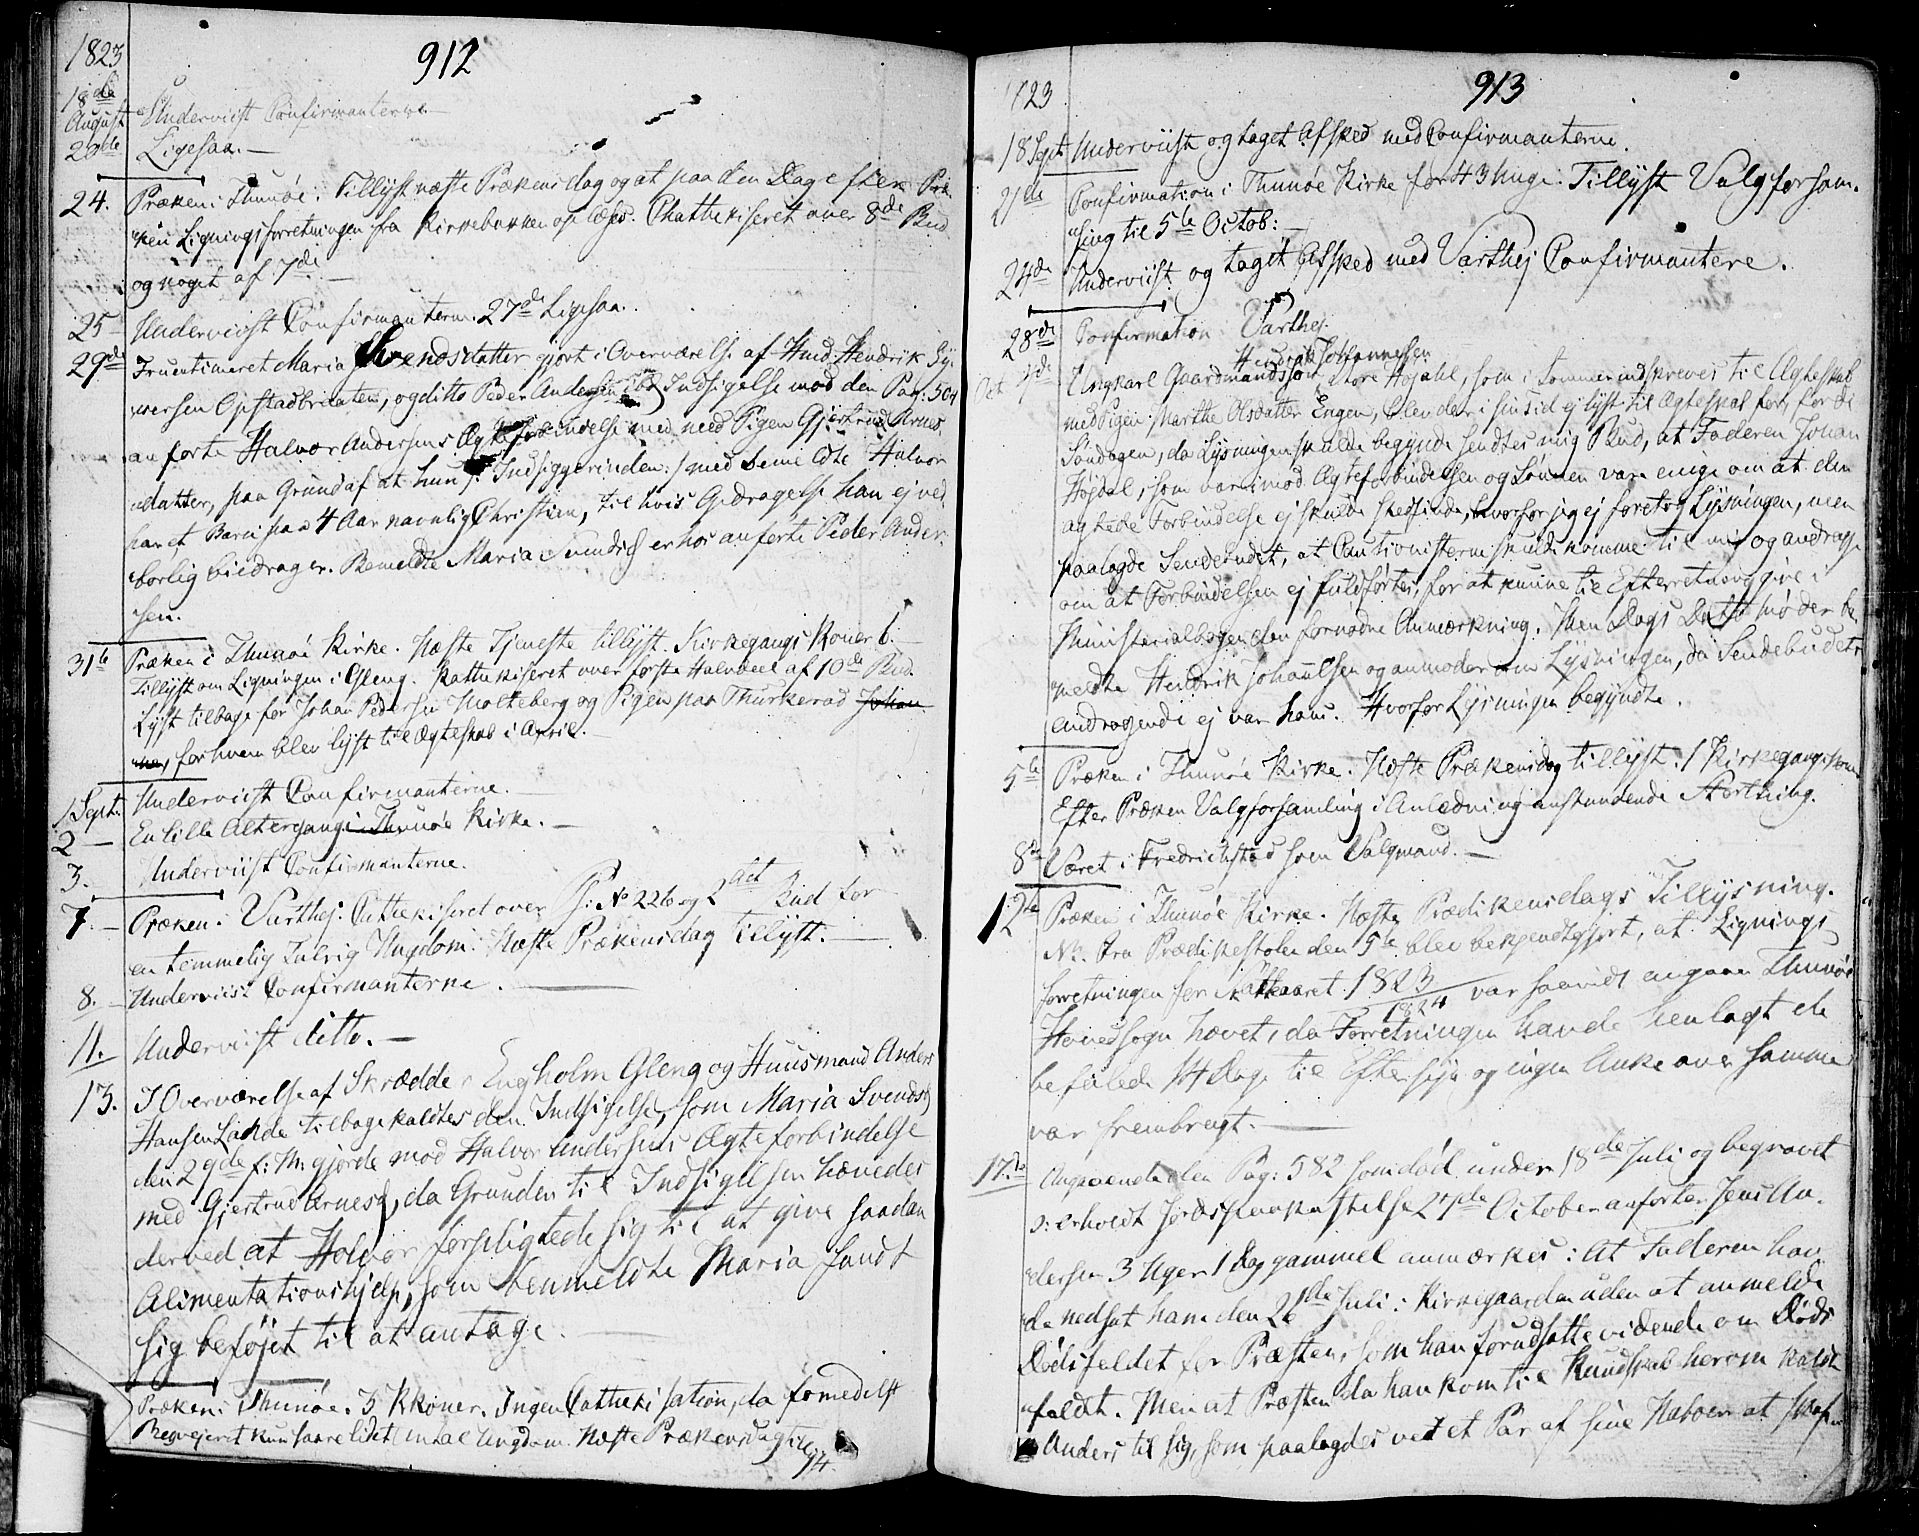 1823
912
18de
August Underviist Confirmanterne
20de Ligesaa. —
24. Præken i Thunøe. Tillyst næste Prækensdag og at paa den Dag efter Præ-
ken Ligningsforretningen fra Kirkebakken oplæses. Chathekiseret over 8de Bud
og noget af 7di —
25 — Underviist Confirmanterne. 27de Ligesaa.
29de Fruentimeret Maria Svendsdatter gjort i Overværelse af Huusm. Hendrik
Opstadbraaten, og ditto Peder Andersen ibd Indsigelse mod den Pag: 504
anførte Halvor Andersens Ægteforbindelse med Pigen Gjertrud Arnes
datter, paa Grund af at hun /: Indsiggerinden :/ med bemeldte Halvor
har et Barn paa 4 Aar navnlig Christian, til hvis Opdragelse han ej ved
børlig biedrager. Bemeldte Maria er hos anførte Peder Ander-
sen.
31te Præken i Thunøe Kirke. Næste Tjeneste tillyst. Kirkegangs Koner 6. —
Tillyst om Ligningen i Gleng. Kathekiseret over første Halvdeel af 10de Bud.
Lyst tilbage for Johan Pedersen Holteberg og Pigen paa Thurkerød Johan
ne, for hvem blev lyst til Ægteskab i April. —
1 Sept. Underviist Confirmanterne. —
2 — En lille Altergang i Thunøe Kirke. —
3. Underviist Confirmanterne.
7. — Præken i Varthej. Cathekiseret over Ps: No 226 og 2det Bud for
en temmelig Talrig Ungdom. Næste Prækensdag tillyst. —
8. — Underviist Confirmanterne. —
11. Underviist ditto. —
13. I Overværelse af Skrædder Engholm Gleng og Huusmand Anders
Hansen Lande tilbagekaldtes den Indsigelse, som Maria Svendsd
den 29de f: M: gjorde mod Halvor Andersens Ægteforbindelse
med Gjertrud Arnesd, da Grunden til Indsigelsen hævedes
derved at Halvor forpligtede sig til at give saadan
Alimentationshjelp, som benmeldte Maria fandt
sig beføjet til at antage. —
Præken i Thunøe. 3 Kkoner. Ingen Cathekisation, da formedelst
Regvejeret kun saare lidet Ungdom. Næste Prækensdag till
94.
1823
913
18 Sept Underviist og taget Afsked med Confirmanterne.
21de Confirmation i Thunøe Kirke for 43 Unge. Tillyst Valgforsam-
ling til 5te Octob: —
24de Underviist og taget Afsked med Varthej Confirmantere.
28de Confirmation i Varthej.
Hendrik Johannessen
Oct 4de Ungkarl Gaardmandssøn Store Højdahl, som i Sommer indskreves til Ægteskab
med Pigen Marthe Olsdatter Engen, blev der i sin Tid ej lyst til Ægteskab for, fordi
Søndagen, da Lysningen skulde begynde sendtes mig Bud, at Faderen Johan
Højdal, som var imod Ægteforbindelsen og Sønnen vare enige om at den
agtede Forbindelse ej skulde stedfinde, hvorfor jeg ej foretog Lysningen, men
paalagde Sendebudet, at Cautionisterne skulde komme til mig og andrage
om at Forbindelsen ej fuldførtes, for at kunne til Efterretning give i
Ministerialbogen den fornødne Anmærkning. Men Dags Dato møder be-
meldte Hendrik Johannesen og anmoder om Lysningen, da Sendebudets
andragende ej var hans. Hvorfor Lysningen begyndte.
5te Præken i Thunøe Kirke. Næste Prækensdag tillyst. 1 Kirkegangskone
Efter Præken Valgforsamling i Anledning anstundende Storthing.
8de Været i Fredrichstad som Valgmand. —
12te Præken i Thunøe Kirke. Næste Prædikensdags Tillysning.
NB. Fra Prædikestolen den 5te blev bekjendtgjort, at Lignings
forretningen for Skatteaaret 1823/1824 var saavidt angaaer Thunøe
Hovedsogn hævet, da Forretningen havde henlagt de
befalede 14 Dage til Eftersyn og ingen Anke over samme
var frembragt. —
17de Angaaende den Pag: 582 som død under 18de Juli og begravet
o: erholdt Jordspaakastelse 27de October anførte Jens An-
dersen 3 Uger 1 Dag gammel anmærkes: At Faderen hav-
de nedsat ham den 26de Juli i Kirkegaarden uden at anmelde
Dødsfaldet for Præsten, som han forudsatte vidende om Døds
faldt. Men at Præsten da han kom til Kundskab herom kaldte
Anders til sig, som paalagdes ved et Par af sine Naboer at skaf